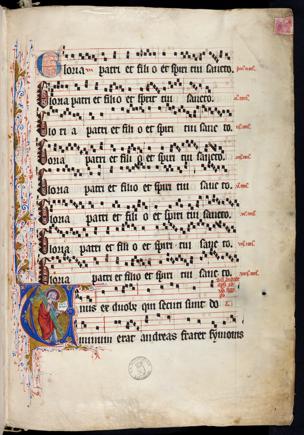 Gloria patri et fili o et spiri tui sancto.
Gloria patri et filio et spirit tui sancto.
Glo ri a patri et fili o et spiri tui sanc to.
Gloria patri et fili o et spiri tui sancto.
Gloria patri et filio et spiri tui sanc to.
Gloria patri et fili o et spiri tui sancto.
Gloria patri et fili o et spiri tui sanc to.
Gloria patri et filio et spiri tui sanc to.
Unus ex duobz qui secuti sunt do
minum erat andreas frater symonis